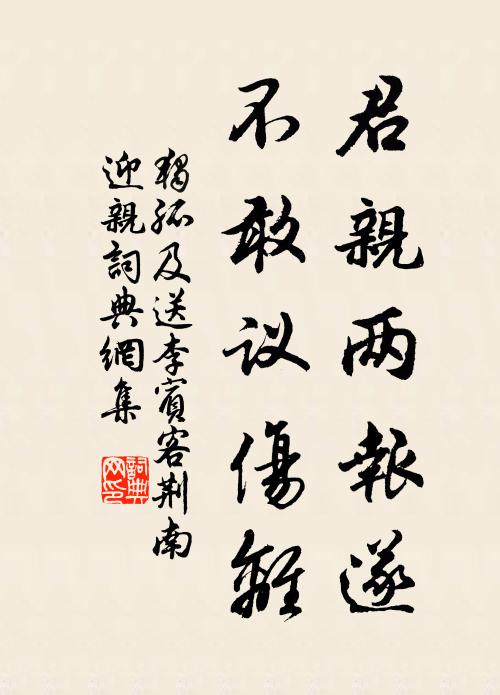 君親两報遂
不敢议傷離
獨孤及送李賓客荆南
迎親詞典網集
詞典网印